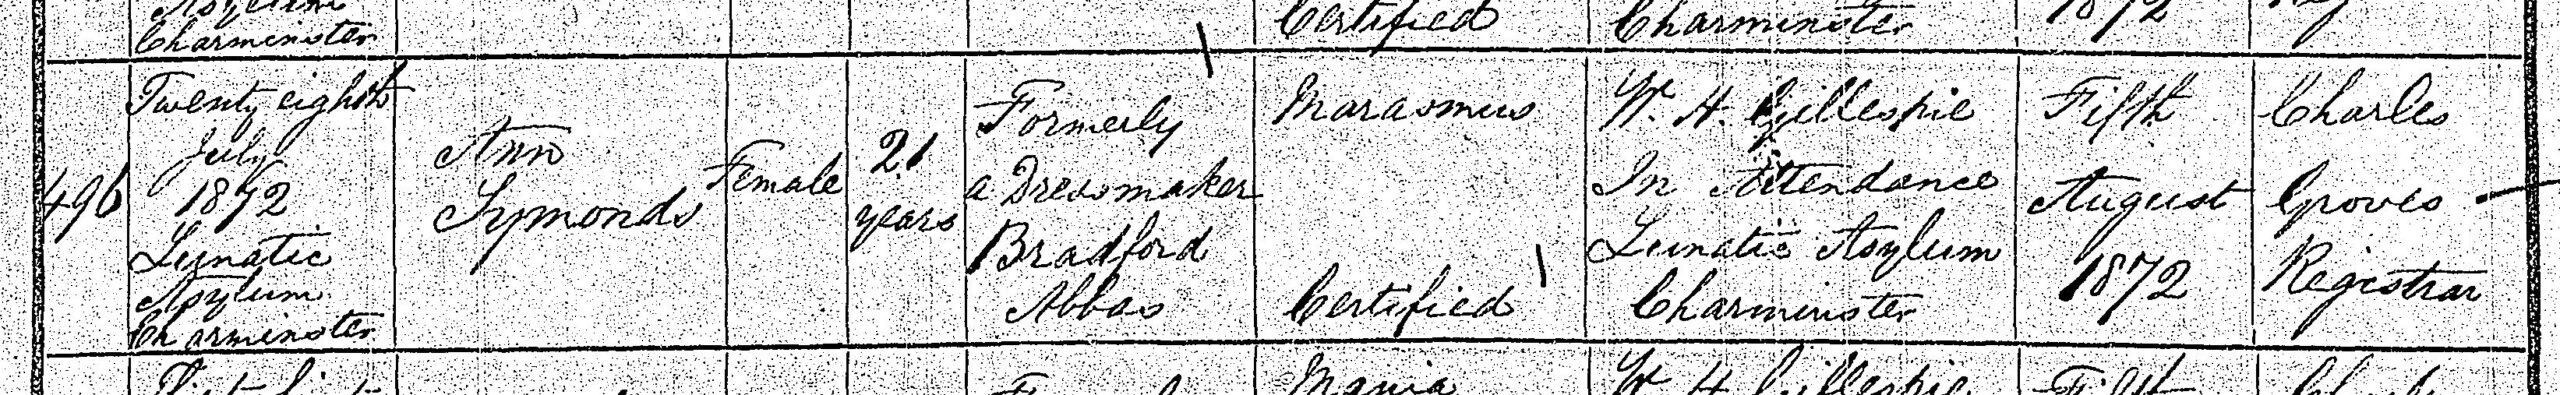 Asylum
Charminster
Certified
Charminster
1872
496
Twenty eighth
July
1872
Lunatic
Asylum
Charminster
Ann
Symonds
Female
21
years
Formerly
a Dressmaker
Bradford
Abbas
Marasmus
Certified
W. H. Gillespie
In Attendance
Lunatic Asylum
Charminster
Fifth
August
1872
Charles
Groves
Registrar
Mania
W. H. Gillespie
Fifth